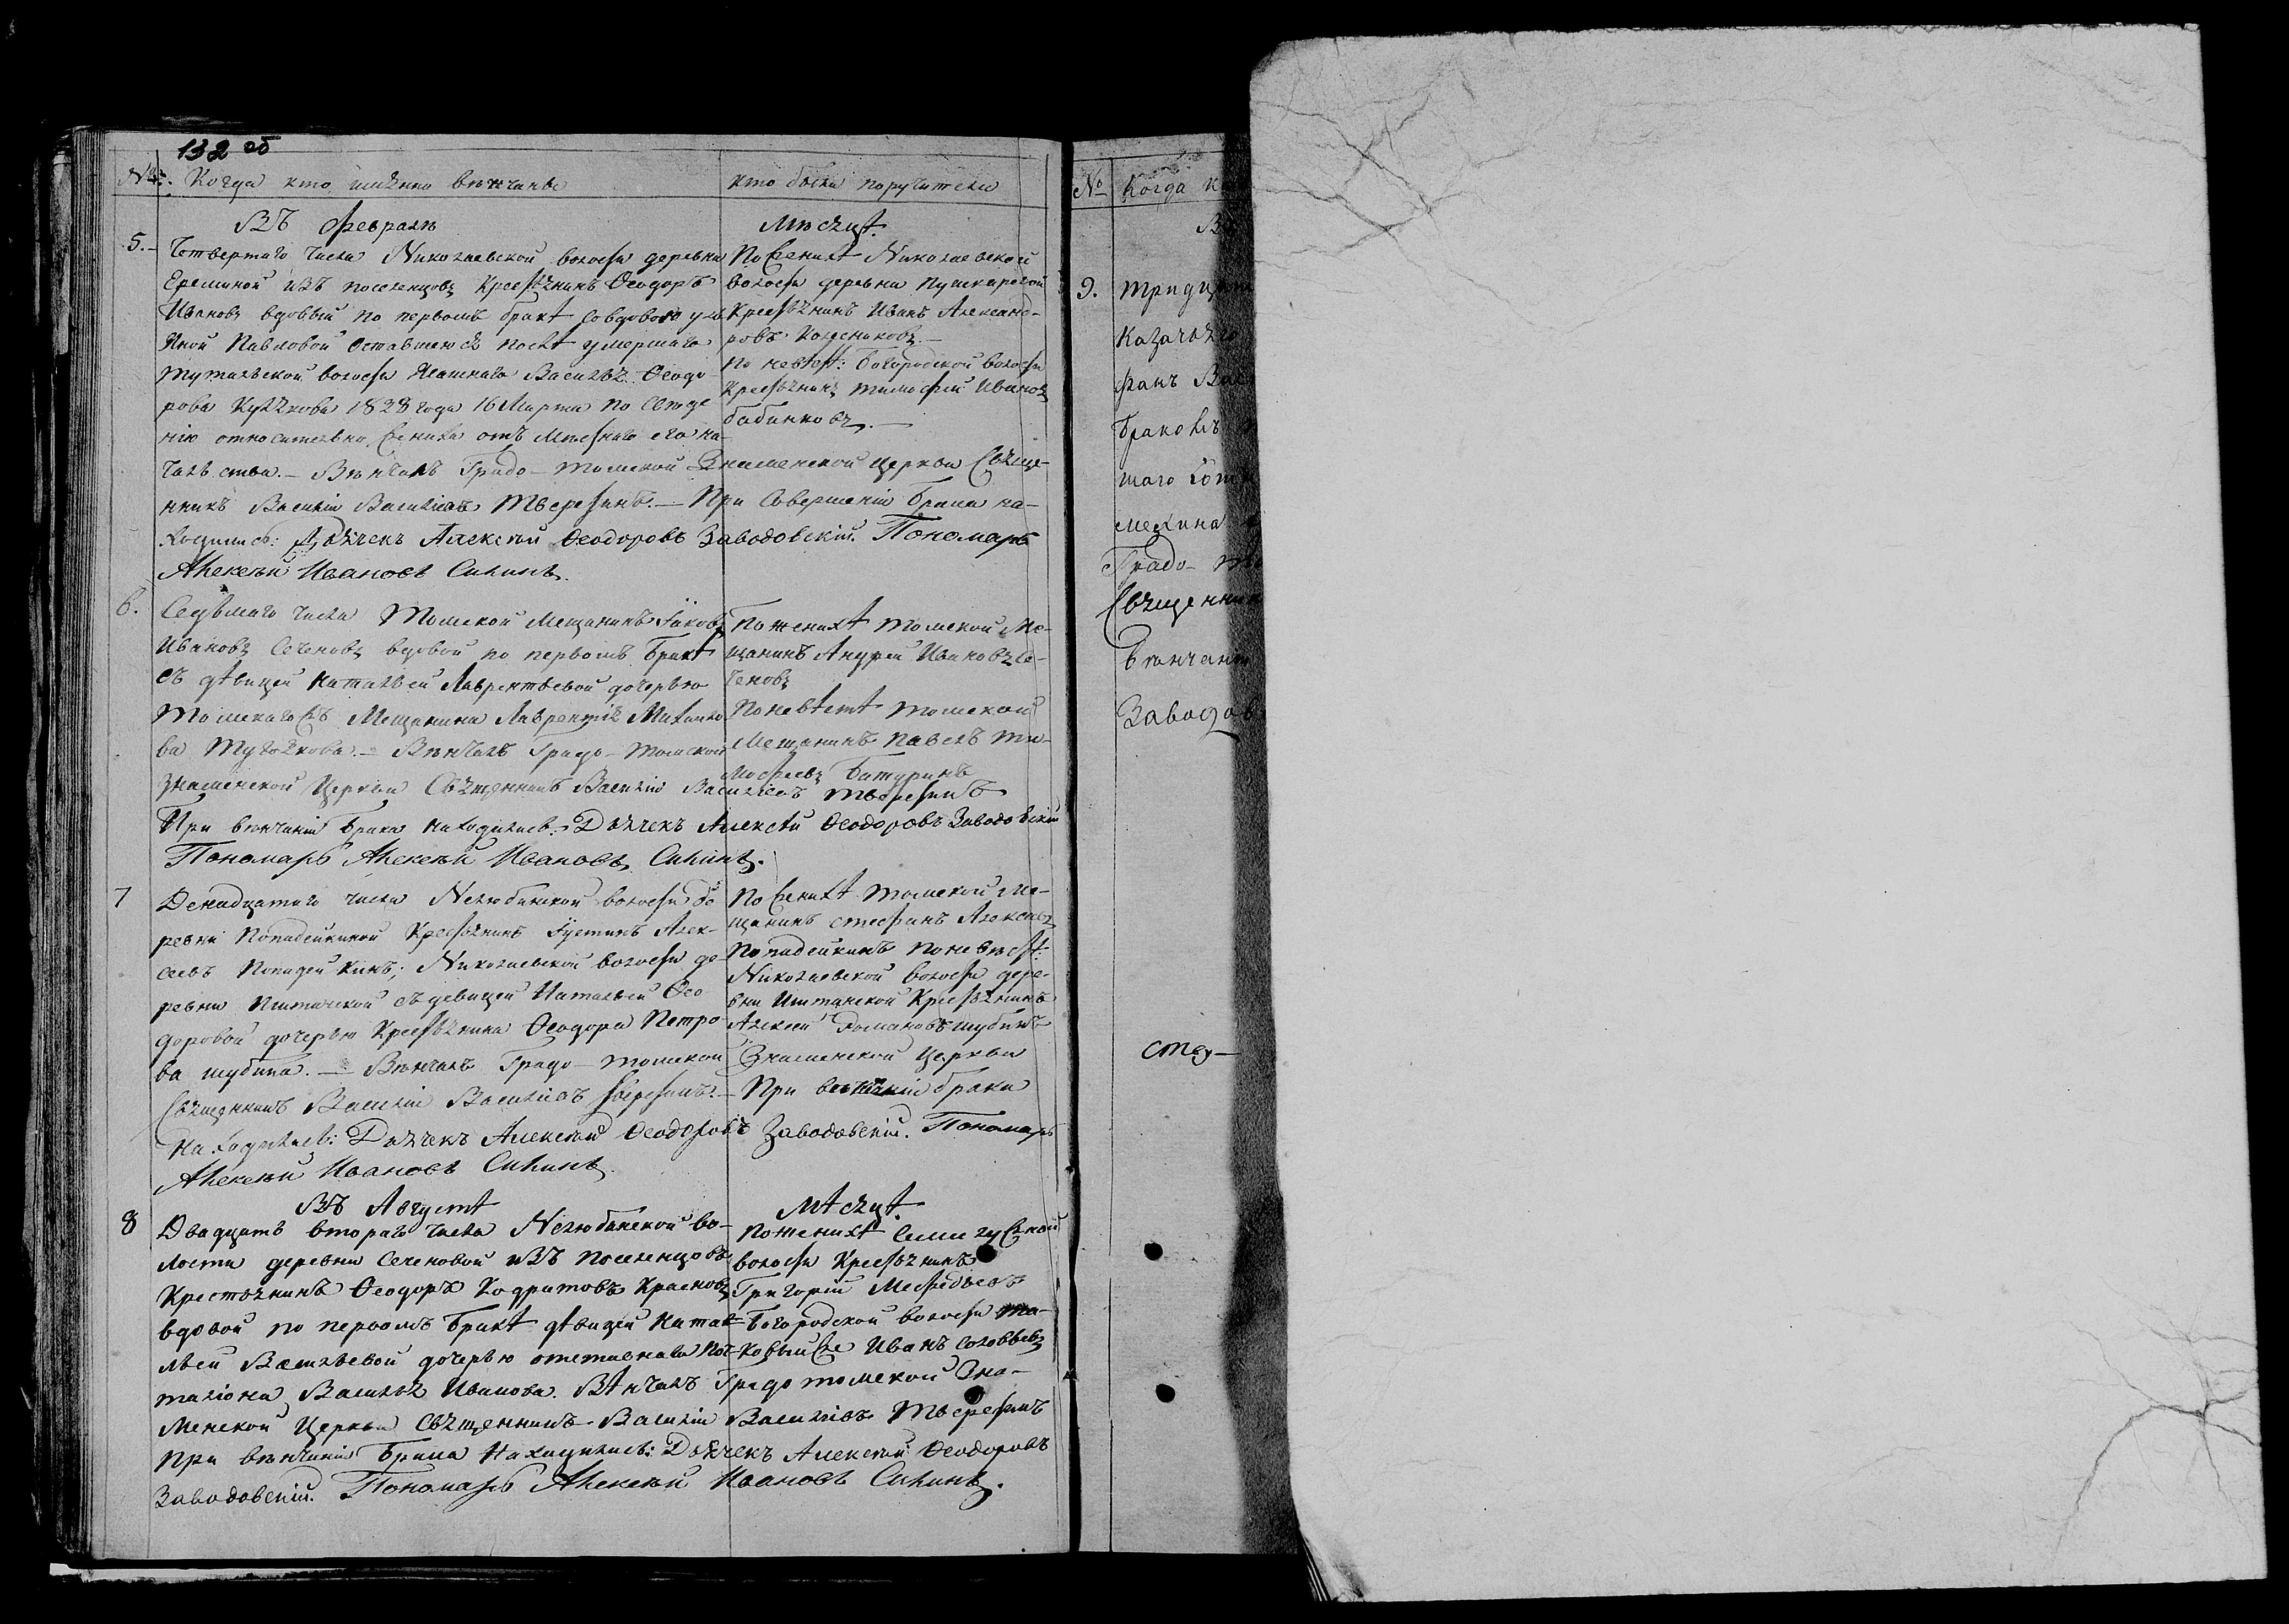 132 об
№: Когда кто имянно венчаны
кто были поручители
Въ феврале
Месяце.
5. Четвертаго числа Николаевской волости деревни
Ереминой изъ поселенцовъ Крестьянинъ Ѳеодоръ
Ивановъ вдовый по первомъ бракѣ со вдовою
Павловой оставшеюся послѣ умершаго
Тутальской волости Ясашнаго Василья Ѳеодо
рова 1828 года 16 Марта по
нію относительно жениха отъ мѣстнаго его на
чальства. Вѣнчалъ Градо-Томской Знаменской Церкви Свяще-
нникъ Василій Василіевъ Тверетинъ. При Совершеніи Брака на-
ходились: Дьячекъ Алексѣй Ѳеодоровъ Заводовскій. Пономарь
Алексѣй Ивановъ
По Женихѣ Николаевской
волости деревни Пушкаревой
Крестьянинъ Иванъ Александ-
ровъ Колесниковъ.
По невестѣ: Богородской волости
Крестьянинъ Тимофей Ивановъ
Бабинковъ.
6. Седьмаго числа Томской Мещанинъ Іаковъ
Ивановъ Сеченовъ вдовой по первомъ Бракѣ
съ дѣвицей Натальей Лаврентьевой дочерью
Томскаго Мещанина Лаврентія Михайло
ва. Вѣнчалъ Градо-Томской
Знаменской Церкви Священникъ Василій Василіевъ Тверетинъ
При венчаніи Брака находились: Дьячекъ Алексѣй Ѳеодоровъ Заводовскій
Пономарь Алексѣй Ивановъ
По женихѣ Томской Ме-
щанинъ Андрей Ивановъ Се-
ченовъ
По невѣстѣ Томской
Мещанинъ Павелъ Ти-
мофеевъ Батуринъ
7 Венадцатаго числа Нелюбинской волости де
ревни Попадейкиной Крестьянинъ Іустинъ Алек-
сеевъ Попадейкинъ; Николаевской волости де-
ревни съ девицей Натальей Ѳео
доровой дочерью Крестьянина Ѳеодора Петро-
ва Шубина. Вѣнчалъ Градо-Томской Знаменской Церкви
Священникъ Василій Василіевъ Тверетинъ. При венчаніи брака
находились: Дьячекъ Алексѣй Ѳеодоровъ Заводовскій. Пономарь
Алексѣй Ивановъ
По Женихѣ Томской Ме-
щанинъ Стефанъ Алексеевъ
Попадейкинъ По невестѣ:
Николаевской волости дере-
вни Крестьянинъ
Алексей Романовъ Шубинъ
Въ Августѣ
Мѣсяцѣ.
8 Двадцать втораго числа Нелюбинской во-
лости деревни Сеченовой изъ поселенцовъ
Крестьянинъ Ѳеодоръ Кодратовъ Красновъ
вдовой по первомъ Бракѣ дѣвицей Ната-
льей Васильевой дочерью отставнаго Поч-
таліона Василья Иванова. Вѣнчалъ Градо Томской Зна-
менской Церкви Священникъ Василій Василіевъ Тверетинъ
При венчаніи Брака Находились: Дьячекъ Алексѣй Ѳеодоровъ
Заводовскій. Пономарь Алексѣй Ивановъ
По женихѣ Семилужной
волости Крестьянинъ
Григорій Мефодьевъ
Богородской волости та-
ковый же Иванъ Соловьевъ
№ Когда
9.
Казачьяго
Браковъ
шаго
Градо-
Священник
Венчани
Заводов